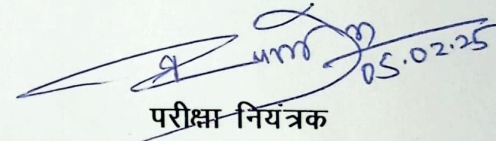 05.02.25
परीक्षा नियंत्रक